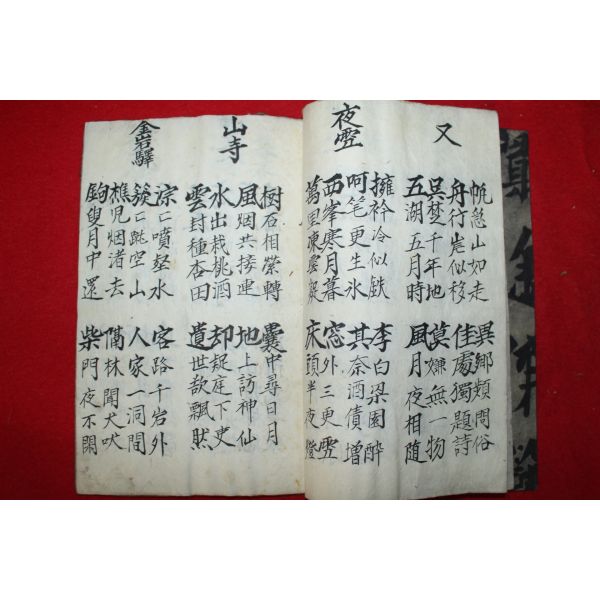 又
帆急山如走
舟行岸似移
異鄉頻問俗
佳處獨題詩
吳楚千年地
五湖五月時
莫嫌無一物
風月夜相隨
夜雪
擁衿冷似鉄
呵笔更生氷
李白梁園醉
其奈酒債增
西岸寒月暮
萬里凍雲凝
窓外三更雪
床頭半夜燈
山寺
樹石相縈轉
風烟共接連
囊中尋日月
地上訪神仙
水出栽桃酒
雲封種杏田
却疑庭下吏
遺世欲飄然
金岩驛
淙〻噴壑水
簇〻跳空山
客路千岩外
人家一洞間
樵児烟渚去
釣叟月中還
隔林聞犬吠
柴門夜不関